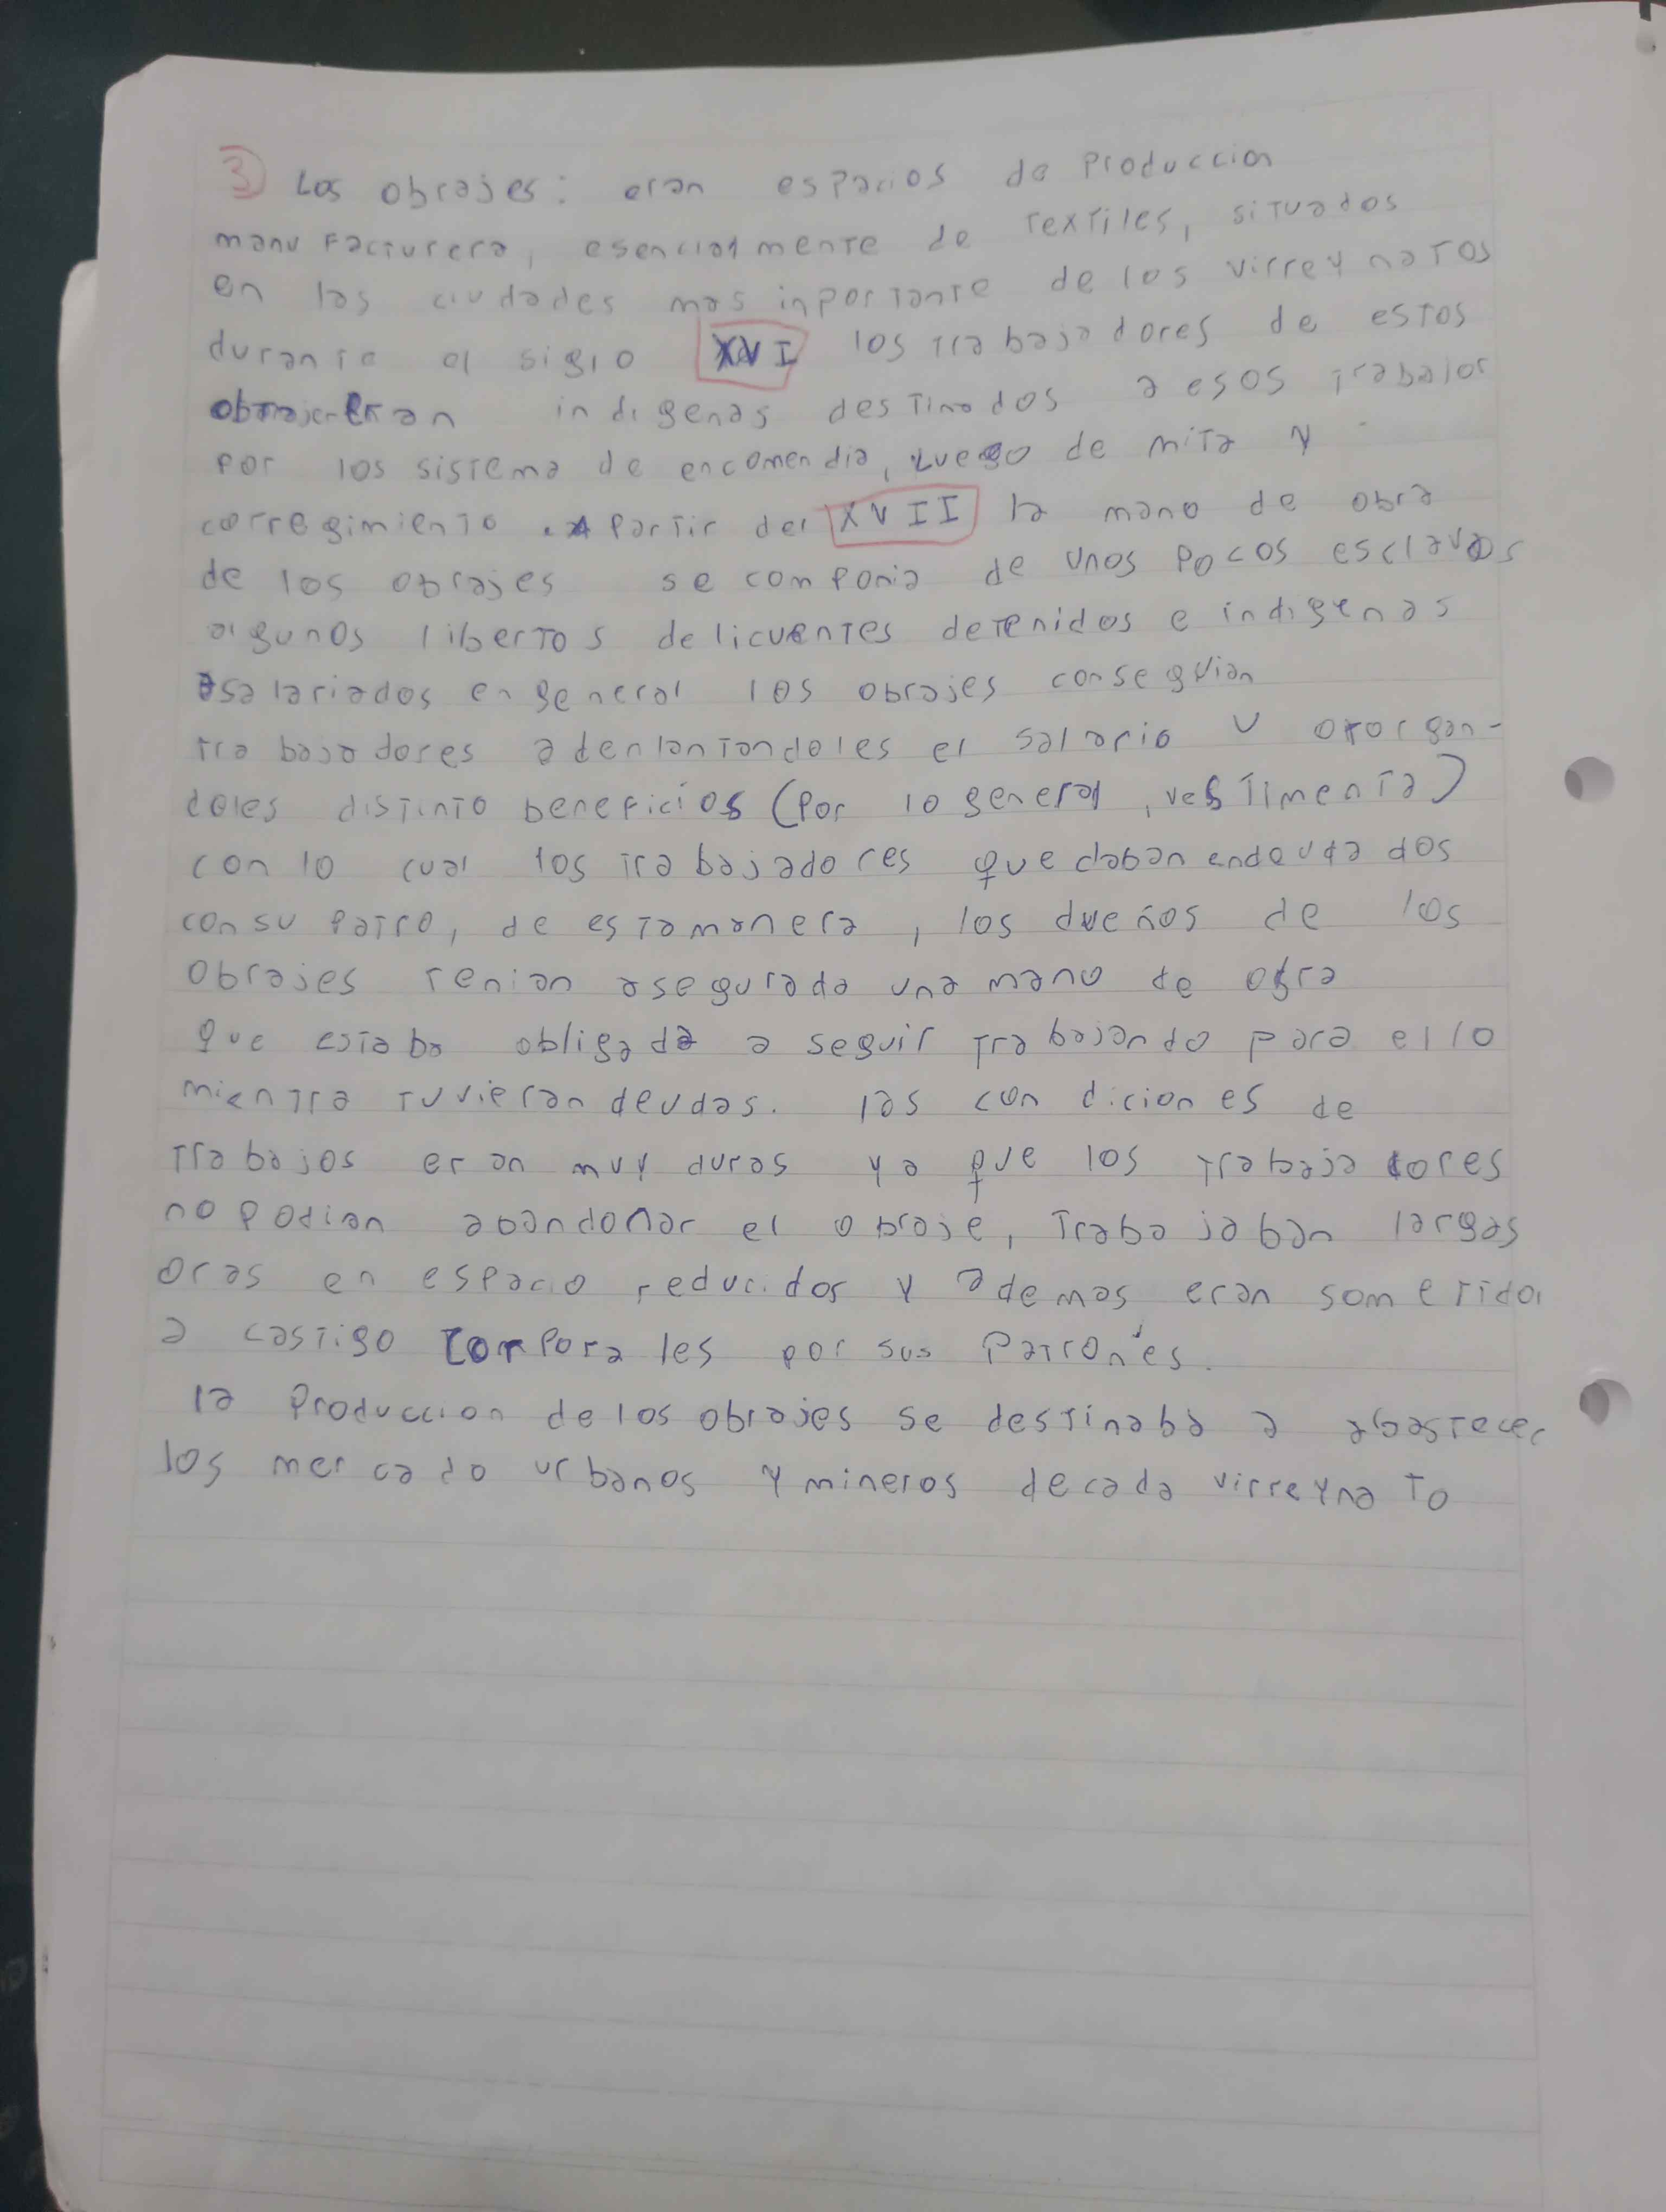 3 Los obrajes: eran espacios de Produccion
manufacturera, esencialmente de textiles, situados
en las ciudades mas inportante de los virreynatos
durante el siglo XVI los trabajadores de estos
obraje eran indigenas destinados a esos trabajos
por los sistema de encomendia, luego de mita y
corregimiento. A partir del XVII la mano de obra
de los obrajes se componia de unos pocos esclavos
algunos libertos delicuentes detenidos e indigenas
asalariados en general los obrajes conseguian
trabajadores adenlantandoles el salario y otorgan-
doles distinto beneficios (Por lo general, vestimenta)
con lo cual los trabajadores quedaban endeudados
con su patro, de esta manera, los dueños de los
obrajes tenian asegurada una mano de obra
que estaba obligada a seguir trabajando para ello
mientra tuvieran deudas. las condiciones de
trabajos eran muy duras ya que los trabajadores
no podian abandonar el obraje, trabajaban largas
oras en espacio reducidos y ademas eran sometidos
a castigo corporales por sus Patrones.
la Produccion de los obrajes se destinaba a abastecer
los mercado urbanos y mineros de cada virreynato